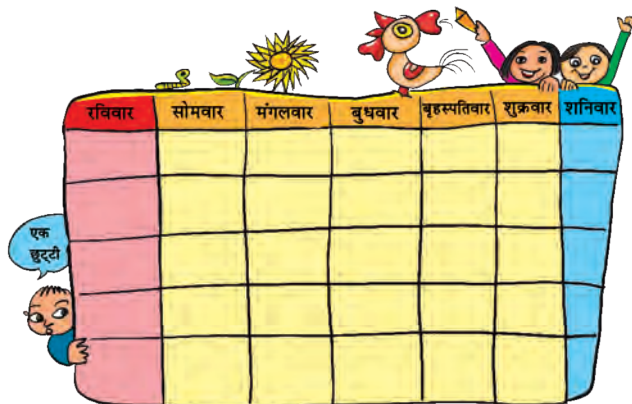 रविवार सोमवार मंगलवार बुधवार बृहस्पतिवार शुक्रवार शनिवार
एक
छुट्टी